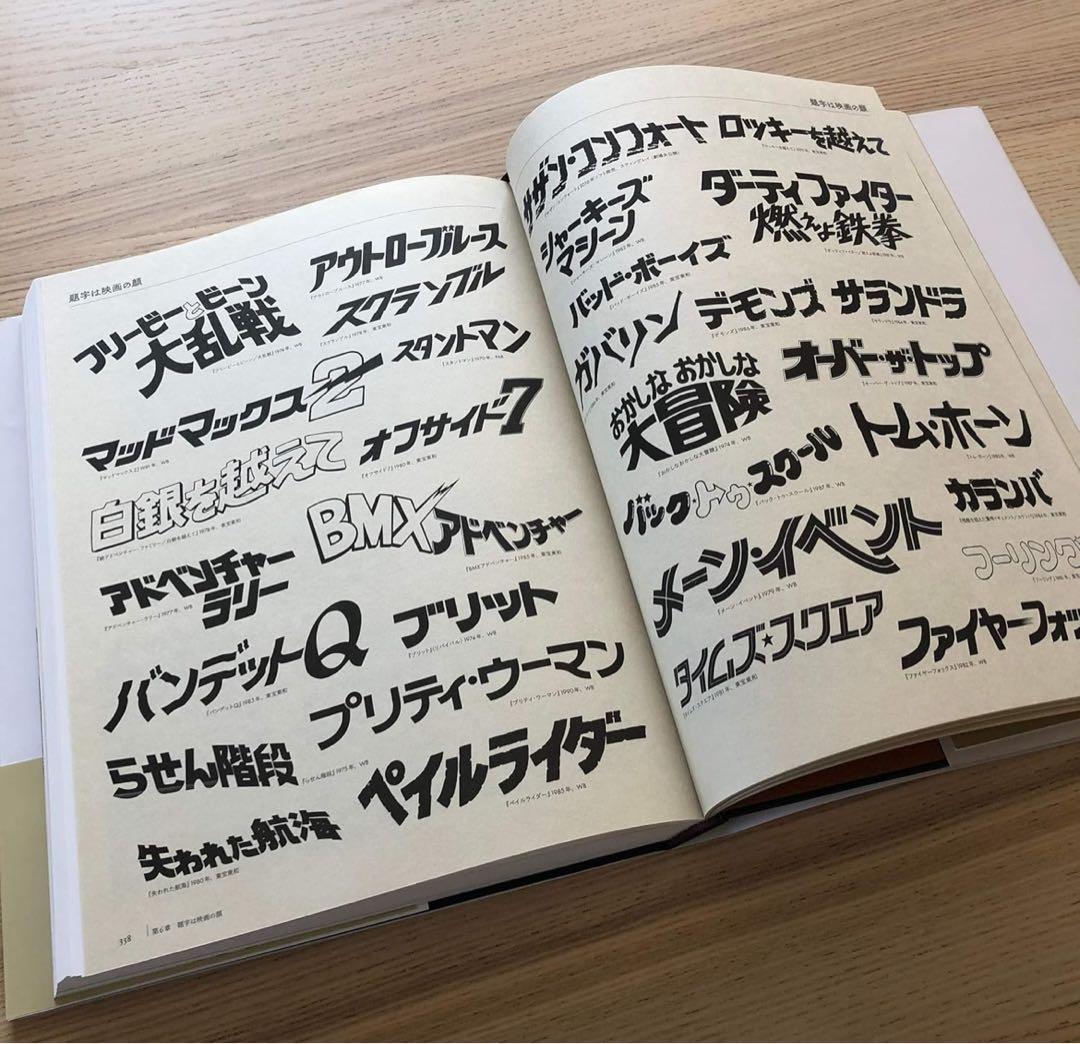 題字は映画の顔
フリービーとビーン
大乱戦
『フリービーとビーン/大乱戦』1974年、WB
アウトローブルース
『アウトローブルース』1977年、WB
スクランブル
『スクランブル』1978年、東宝東和
マッドマックス2
『マッドマックス2』1981年、WB
スタントマン
オフサイド7
『オフサイド7』1980年、東宝東和
白銀を越えて
BMXアドベンチャー
『BMXアドベンチャー』1983年、東宝東和
アドベンチャー
ラリー
『アドベンチャー・ラリー』1977年、WB
バンデットQ
『バンデットQ』1983年、東宝東和
ブリット
『ブリット』(リバイバル) 1974年、WB
プリティ・ウーマン
『プリティ・ウーマン』1990年、WB
らせん階段
『らせん階段』1975年、WB
ペイルライダー
『ペイルライダー』1985年、WB
失われた航海
『失われた航海』1980年、東宝東和
358
第6章 題字は映画の顔
題字は映画の顔
サザン・コンフォート
ロッキーを越えて
シャーキーズ
マシーン
ダーティファイター
燃えよ鉄拳
バッド・ボーイズ
『バッド・ボーイズ』1983年、東宝東和
ガバリン
デモンズ
『デモンズ』1986年、東宝東和
サランドラ
おかしな おかしな
大冒険
『おかしなおかしな大冒険』1974年、WB
オーバー・ザ・トップ
『オーバー・ザ・トップ』1987年、東宝東和
バック・トゥ・スクール
『バック・トゥ・スクール』1987年、WB
トム・ホーン
『トム・ホーン』1980年、WB
カランバ
メーン・イベント
『メーン・イベント』1979年、WB
フーリング
タイムズ★スクエア
『タイムズ・スクエア』1981年、東宝東和
ファイヤーフォッ
『ファイヤーフォックス』1982年、WB